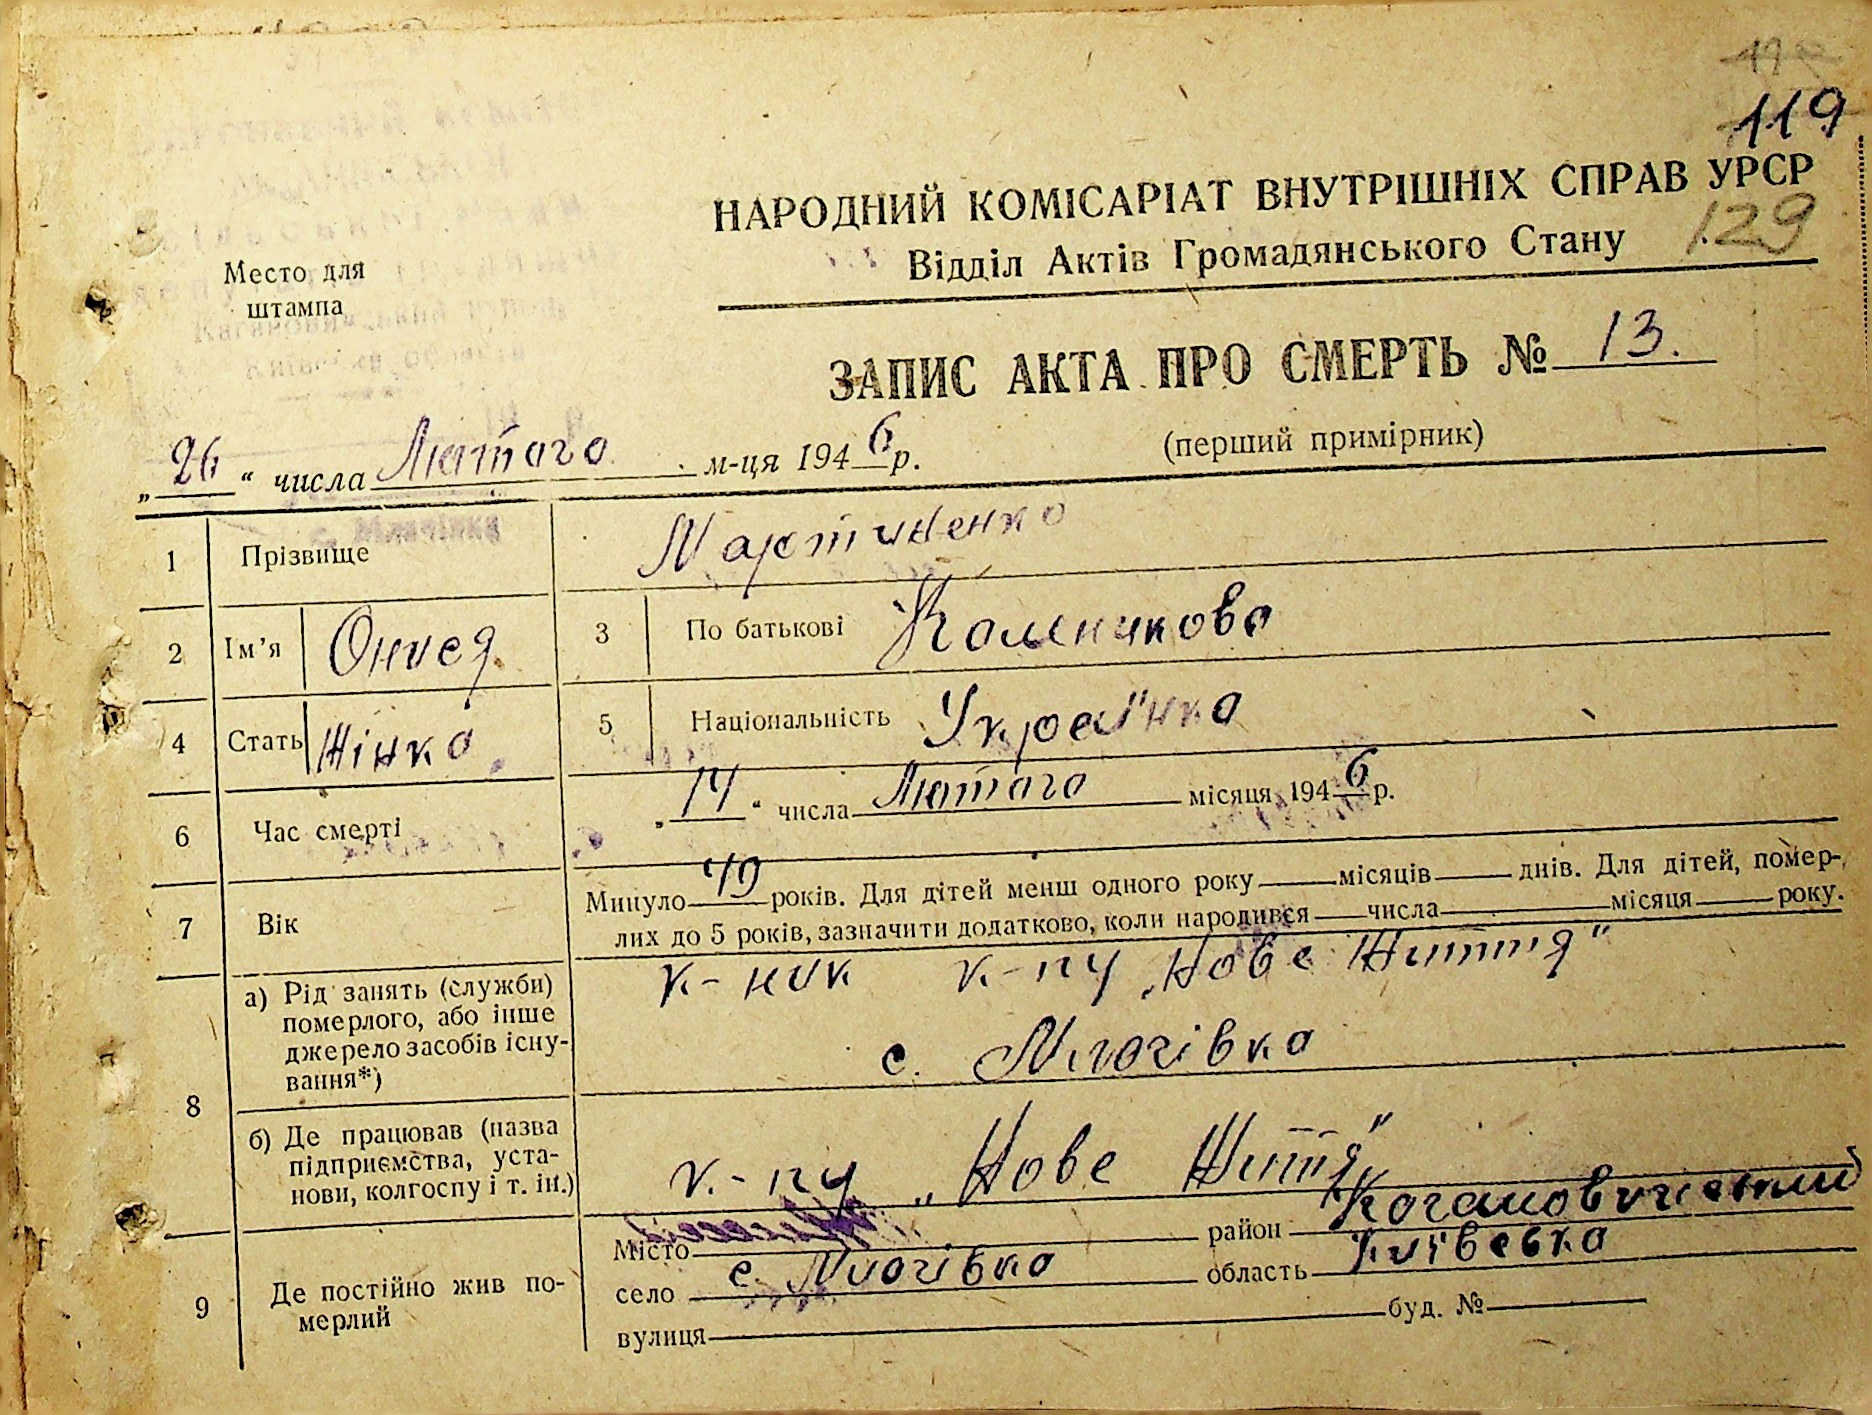 119
НАРОДНИЙ КОМІСАРІАТ ВНУТРІШНІХ СПРАВ УРСР
129
Відділ Актів Громадянського Стану
Место для
штампа
ЗАПИС АКТА ПРО СМЕРТЬ № 13.
(перший примірник)
„26“ числа Лютого м-ця 1946 р.
1 Прізвище Мартиненко
2 Ім'я Онися 3 По батькові
4 Стать Жінка 5 Національність Українка
6 Час смерті „14“ числа Лютого місяця 1946 р.
7 Вік Минуло 49 років. Для дітей менш одного року місяців днів. Для дітей, помер-
лих до 5 років, зазначити додатково, коли народився числа місяця року.
8 а) Рід занять (служби)
померлого, або інше
джерело засобів існу-
вання*)
к-ник к-пу „Нове Життя"
с.
б) Де працював (назва
підприємства, уста-
нови, колгоспу і т. ін.)
к.-пу „Нове Життя"
9 Де постійно жив по-
мерлий
Місто район Кагановичський
село с. область Київська
вулиця буд. №